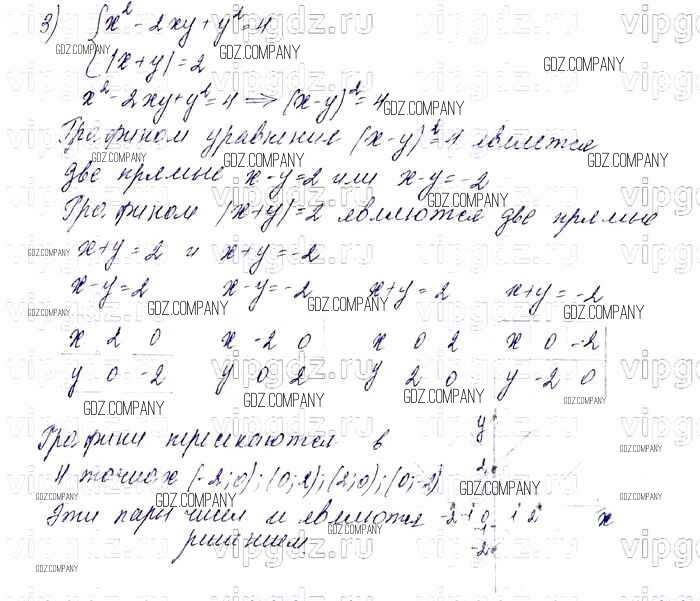 3) { x² - 2xy + y² = 4
|x+y| = 2
x² - 2xy + y² = 4 => (x-y)² = 4
Графиком уравнение (x-y)² = 4 является
две прямые x-y=2 или x-y=-2
Графиком |x+y|=2 являются две прямые
x+y = 2 и x+y = -2
x-y=2 x-y=-2 x+y=2 x+y=-2
x 2 0 x -2 0 x 0 2 x 0 -2
y 0 -2 y 0 2 y 2 0 y -2 0
Графики пересекаются в y
4 точках (-2;0); (0;2); (2;0); (0;-2) 2
Эти пары чисел и являются -2 -1 0 1 2 x
решением -2
GDZ.COMPANY
vipgdz.ru